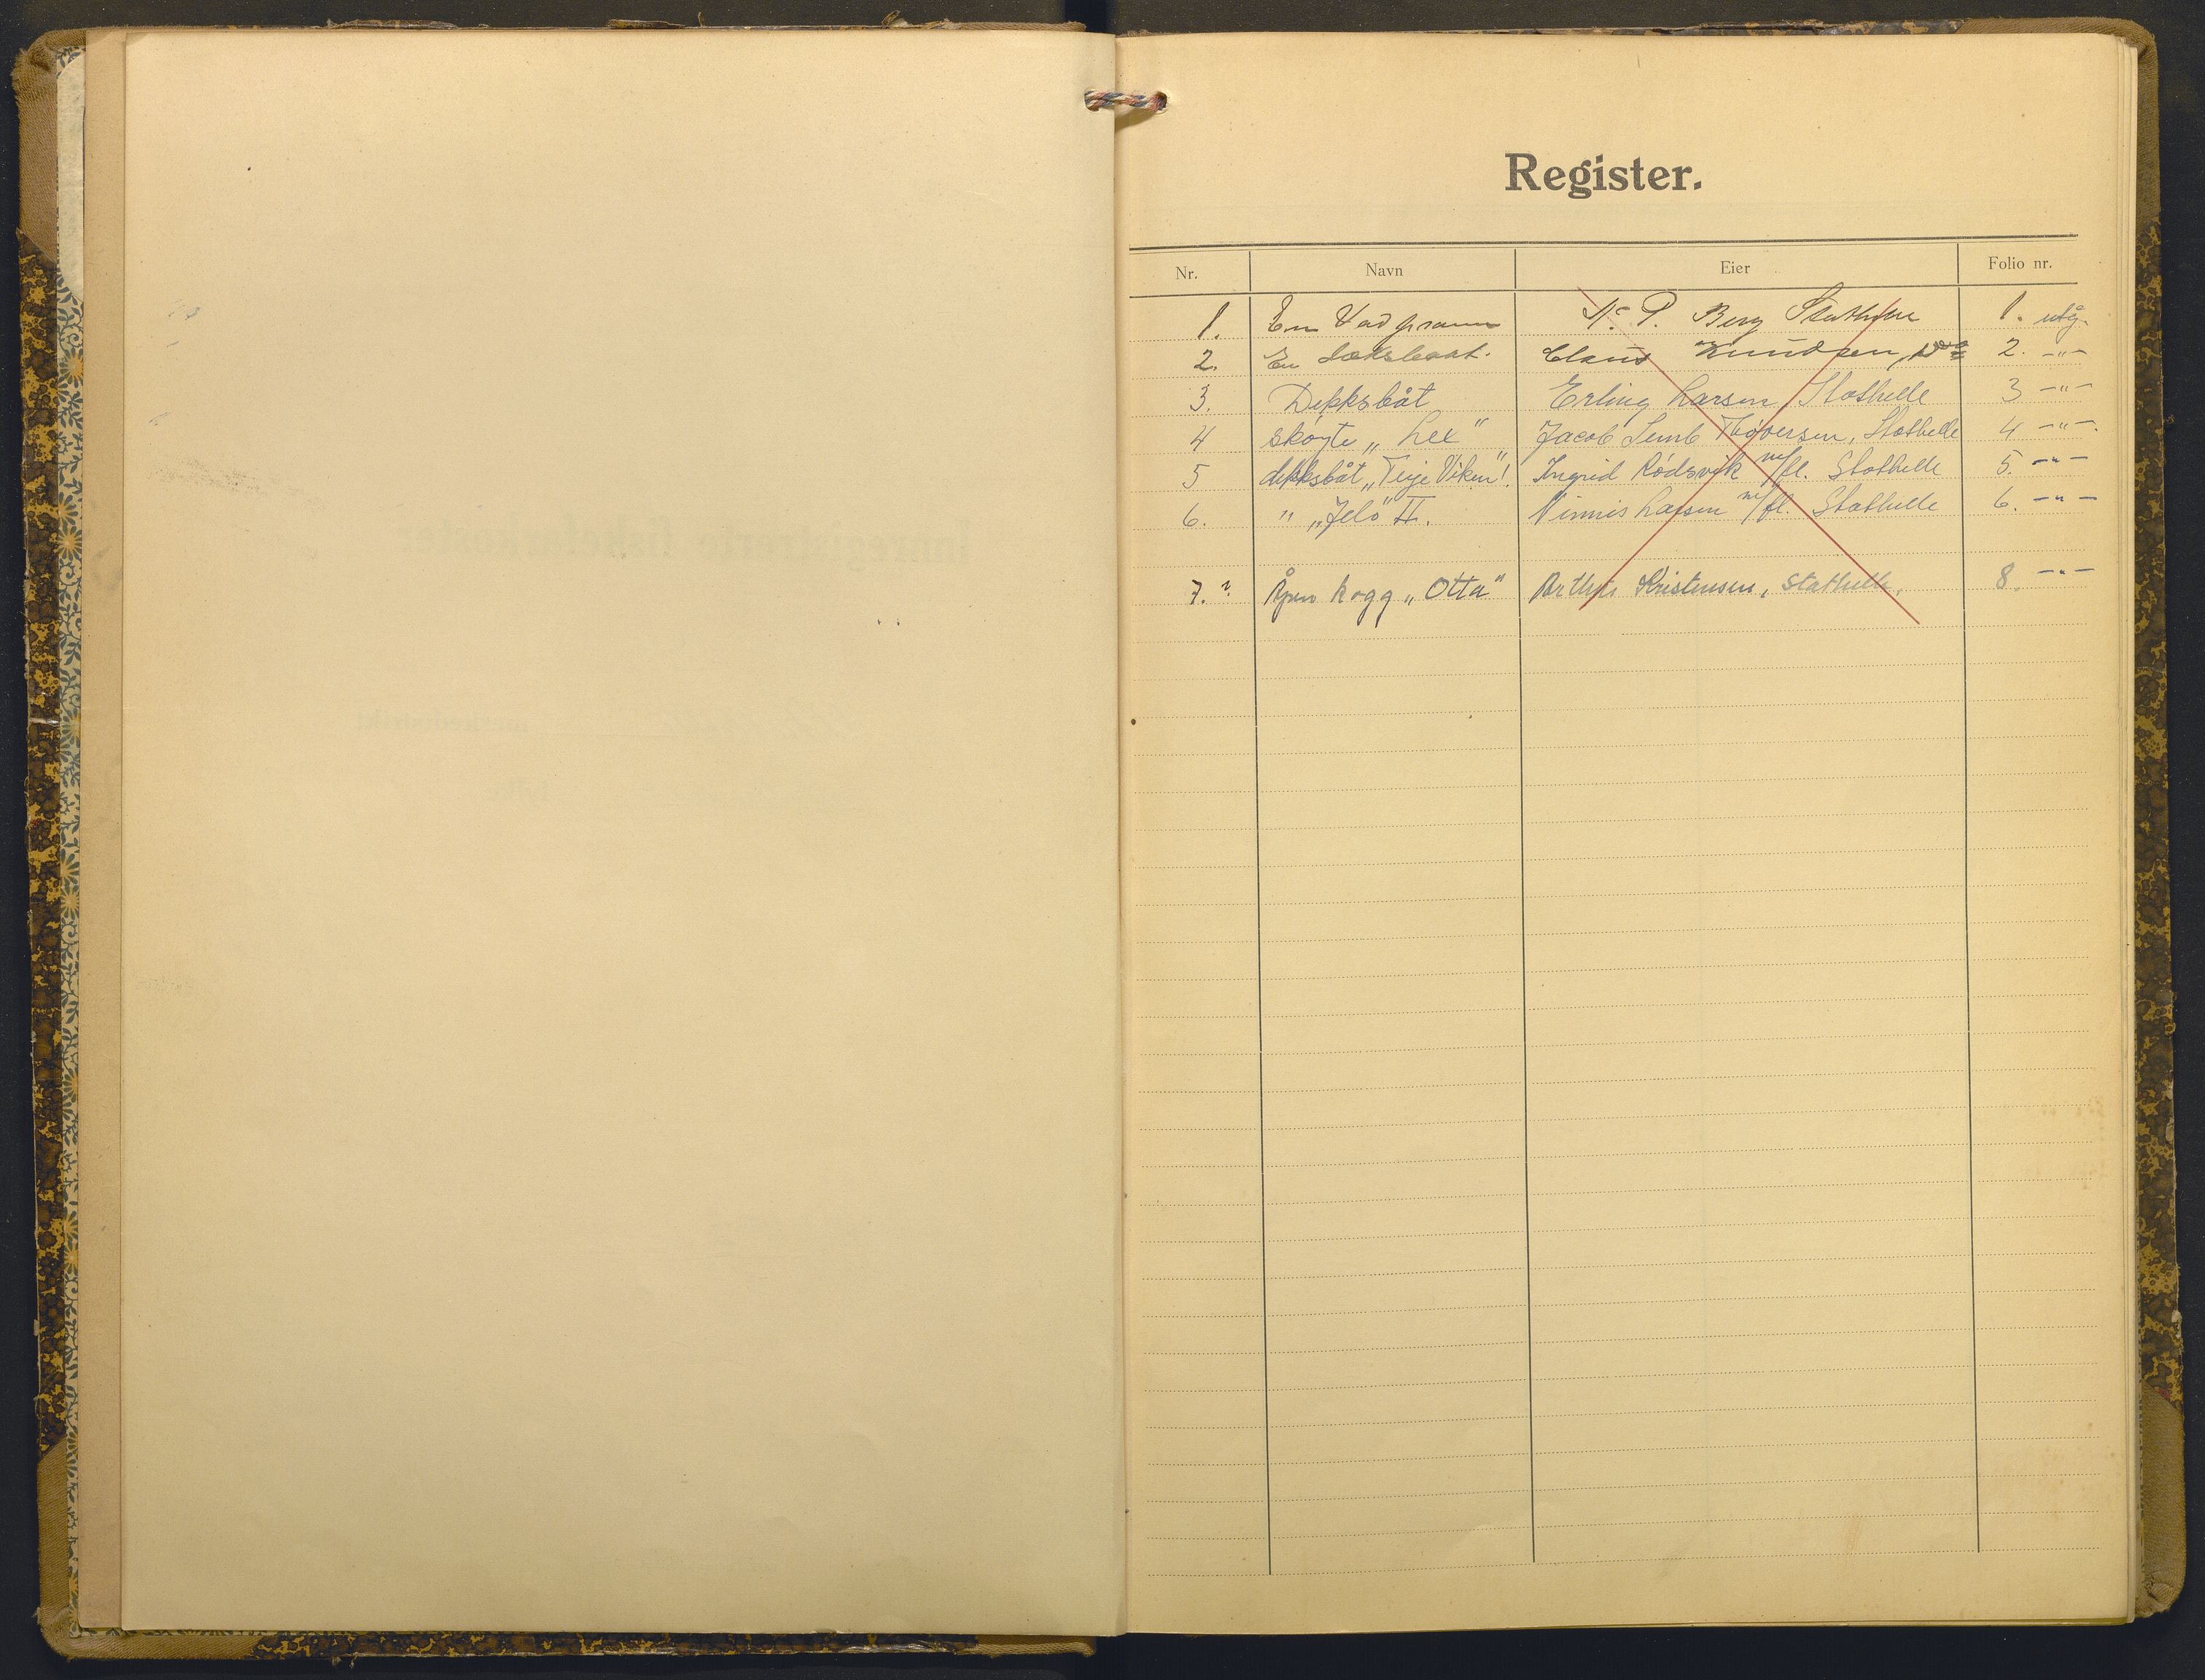 Register.
Nr. Navn Eier Folio nr.
1. En Vadpram P. Berg Stathelle 1. utg.
2. En Dæksbaat. Claus Knudsen, 2. -"-
3. Dekksbåt Erling Larsen, Stathelle 3 -"-
4 Skøyte „Lex" Jacob Lemb Thoversen, Stathelle 4 -"-.
5 dekksbåt „Terje Viken"! Ingrid Rødsvik m/fl. Stathelle 5. -"-
6. " „Jelö" II. Larsen m/fl. Stathelle 6. -"-
7. Åpen kogg „Otta" Arthur Kristensen, Stathelle. 8. -"-